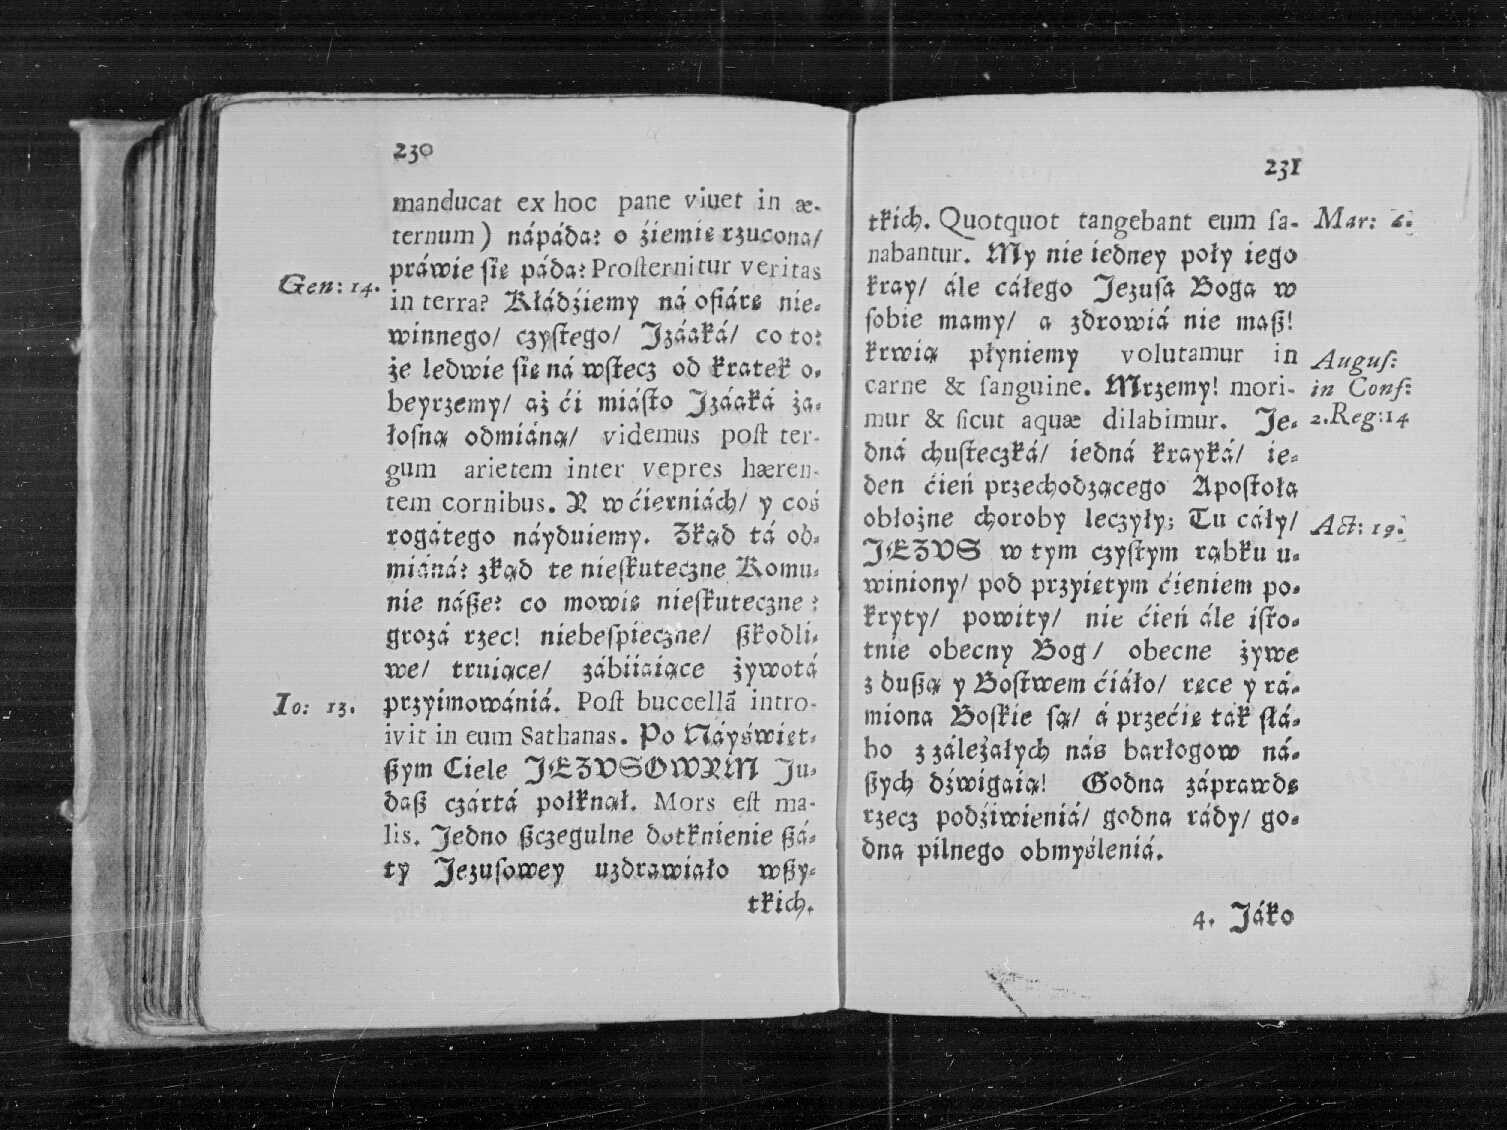 230
manducat ex hoc pane viuet in æ-
ternum) nápáda: o źiemię rzucona/
práwie się páda: Prosternitur veritas
Gen: 14.
in terra? Kłádźiemy ná ofiárę nie-
winnego/ czystego/ Jzááká/ co to:
że ledwie się ná wstecz od kratek o-
beyrzemy/ aż ći miásto Jzááká ża-
łosną odmiáną/ videmus post ter-
gum arietem inter vepres hæren-
tem cornibus. Y w ćierniách/ y coś
rogátego náyduiemy. Zkąd tá od-
miáná: zkąd te nieskuteczne Komu-
nie násze: co mowię nieskuteczne:
grozá rzec! niebespieczne/ szkodli-
we/ truiące/ zábiiaiące żywotá
Io: 13.
przyimowániá. Post buccellã intro-
ivit in eum Sathanas. Po Náyświęt-
szym Ciele JEZVSOWYM Ju-
dasz czártá połknął. Mors est ma-
lis. Jedno szczegulne dotknienie szá-
ty Jezusowey uzdrawiało wszy-
tkich.
231
tkich. Quotquot tangebant eum sa-
Mar: 6.
nabantur. My nie iedney poły iego
kray/ ále cáłego Jezusa Boga w
sobie mamy/ a zdrowiá nie masz!
krwią płyniemy volutamur in
Augus:
carne & sanguine. Mrzemy! mori-
in Conf:
mur & sicut aquæ dilabimur. Je-
2.Reg:14
dná chusteczká/ iedná krayká/ ie-
den ćień przechodzącego Apostoła
obłożne choroby leczyły; Tu cáły/
Act: 19.
JEZVS w tym czystym rąbku u-
winiony/ pod przyiętym ćieniem po-
kryty/ powity/ nie ćień ále isto-
tnie obecny Bog/ obecne żywe
z duszą y Bostwem ćiáło/ ręce y rá-
miona Boskie są/ á przećię ták słá-
bo z záleżáłych nás barłogow ná-
szych dźwigaią! Godna záprawdę
rzecz podźiwieniá/ godna rády/ go-
dna pilnego obmyśleniá.
4. Jáko